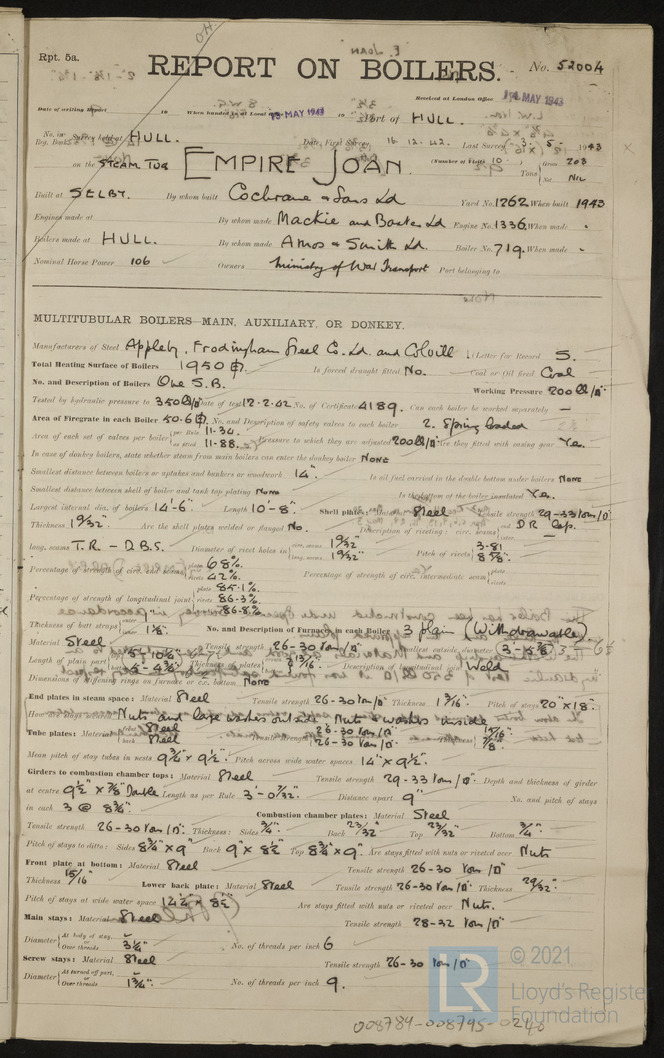 Rpt. 5a.
REPORT ON BOILERS.
No. 52004
Received at London Office 14 MAY 1943
Date of writing Report When handed in at Local Office 13 MAY 1943 Port of HULL.
No. in Reg. Book. Survey held at HULL. Date, First Survey 16.12.42. Last Survey 3. 5. 1943
on the STEAM TUG EMPIRE JOAN. (Number of Visits 10) Tons Gross 203 Net Nil
Built at SELBY. By whom built Cochrane & Sons Ld Yard No. 1262 When built 1943
Engines made at By whom made Mackie and Baxter Ld Engine No. 1336. When made -
Boilers made at HULL. By whom made Amos & Smith Ld. Boiler No. 719. When made -
Nominal Horse Power 106 Owners Ministry of War Transport Port belonging to
MULTITUBULAR BOILERS MAIN, AUXILIARY, OR DONKEY.
Manufacturers of Steel Appleby, Frodingham Steel Co. Ld. and Colvill (Letter for Record S.
Total Heating Surface of Boilers 1950 Is forced draught fitted No. Coal or Oil fired Coal
No. and Description of Boilers One S.B. Working Pressure 200
Tested by hydraulic pressure to 350 Date of test 12.2.42 No. of Certificate 4189. Can each boiler be worked separately —
Area of Firegrate in each Boiler 50.6 No. and Description of safety valves to each boiler 2. Spring loaded
Area of each set of valves per boiler per Rule 11.34. as fitted 11.88. Pressure to which they are adjusted 200 Are they fitted with easing gear Yes.
In case of donkey boilers, state whether steam from main boilers can enter the donkey boiler NONE
Smallest distance between boilers or uptakes and bunkers or woodwork 14". Is oil fuel carried in the double bottom under boilers NONE
Smallest distance between shell of boiler and tank top plating None Is the bottom of the boiler insulated Yes.
Largest internal dia. of boilers 14'-6" Length 10'-8" Shell plates: Material Steel Tensile strength 29-33 tons/□"
Thickness 1 9/32" Are the shell plates welded or flanged No. Description of riveting: circ. seams end DR Lap.
long. seams T.R. - D.B.S. Diameter of rivet holes in circ. seams 1 9/32 long. seams 1 9/32 Pitch of rivets 3.81 8 7/8".
Percentage of strength of circ. end seams plate 68%. rivets 42%. Percentage of strength of circ. intermediate seam
Percentage of strength of longitudinal joint plate 85.1%. rivets 86.3%. combined 86.8%.
Thickness of butt straps 1 1/8. No. and Description of Furnaces in each Boiler 3 plain (Withdrawable)
Material Steel Tensile strength 26-30 tons/□" Smallest outside diameter
Length of plain part Thickness of plates Description of longitudinal joint Weld
Dimensions of stiffening rings on furnace or c.c. bottom None
End plates in steam space: Material Steel Tensile strength 26-30 tons/□" Thickness 1 3/16" Pitch of stays 20" x 18".
How Nuts and large washers outside. Nuts & washers inside
Tube plates: Material Steel Steel Tensile strength 26-30 tons/□" 26-30 tons/□" Thickness 15/16" 7/8".
Mean pitch of stay tubes in nests 9 3/4" x 9 1/2" Pitch across wide water spaces 14" x 9 1/2".
Girders to combustion chamber tops: Material Steel Tensile strength 29-33 tons/□" Depth and thickness of girder
at centre 9 1/2" x 7/8" Double Length as per Rule 3'-0 7/32" Distance apart 9" No. and pitch of stays
in each 3 @ 8 3/4". Combustion chamber plates: Material Steel
Tensile strength 26-30 tons/□". Thickness: Sides 3/4". Back 23/32" Top 23/32" Bottom 3/4".
Pitch of stays to ditto: Sides 8 3/4" x 9" Back 9" x 8 1/2" Top 8 3/4" x 9". Are stays fitted with nuts or riveted over Nuts
Front plate at bottom: Material Steel Tensile strength 26-30 tons/□"
Thickness 15/16" Lower back plate: Material Steel Tensile strength 26-30 tons/□" Thickness 29/32".
Pitch of stays at wide water space 14 1/2" x 8 1/2" Are stays fitted with nuts or riveted over Nuts.
Main stays: Material Steel Tensile strength 28-32 tons/□"
Diameter At body of stay, or Over threads 3 1/4" No. of threads per inch 6
Screw stays: Material Steel Tensile strength 26-30 tons/□"
Diameter At turned off part, or Over threads 1 3/4". No. of threads per inch 9.
© 2021
LR
Lloyd's Register
Foundation
008784-008795-0246